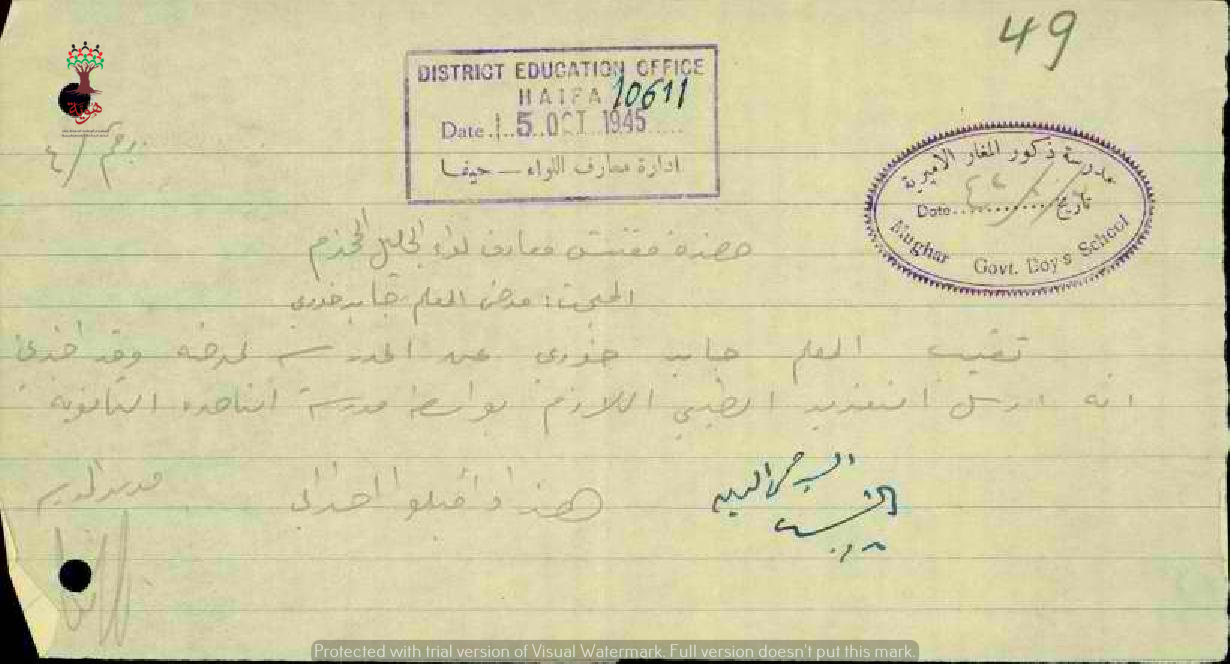 49
DISTRICT EDUCATION OFFICE
HAIFA 10611
Date 15 OCT 1945
ادارة معارف اللواء — حيفا
هوية
رقم / ٤
مدرسة ذكور المغار الاميرية
Date.......... تاريخ
Mughar Govt. Boy's School
حضرة مفتش معارف لواء الجليل المحترم
المبحث: مرض المعلم جابر خوري
تغيب المعلم جابر خوري عن المدرسة لمرضه وقد اخبرني
انه ارسل التقرير الطبي اللازم بواسطة مدرسة الناصرة الثانوية
هذا واقبلوا احترامي
مدير المدرسة
Protected with trial version of Visual Watermark. Full version doesn't put this mark.